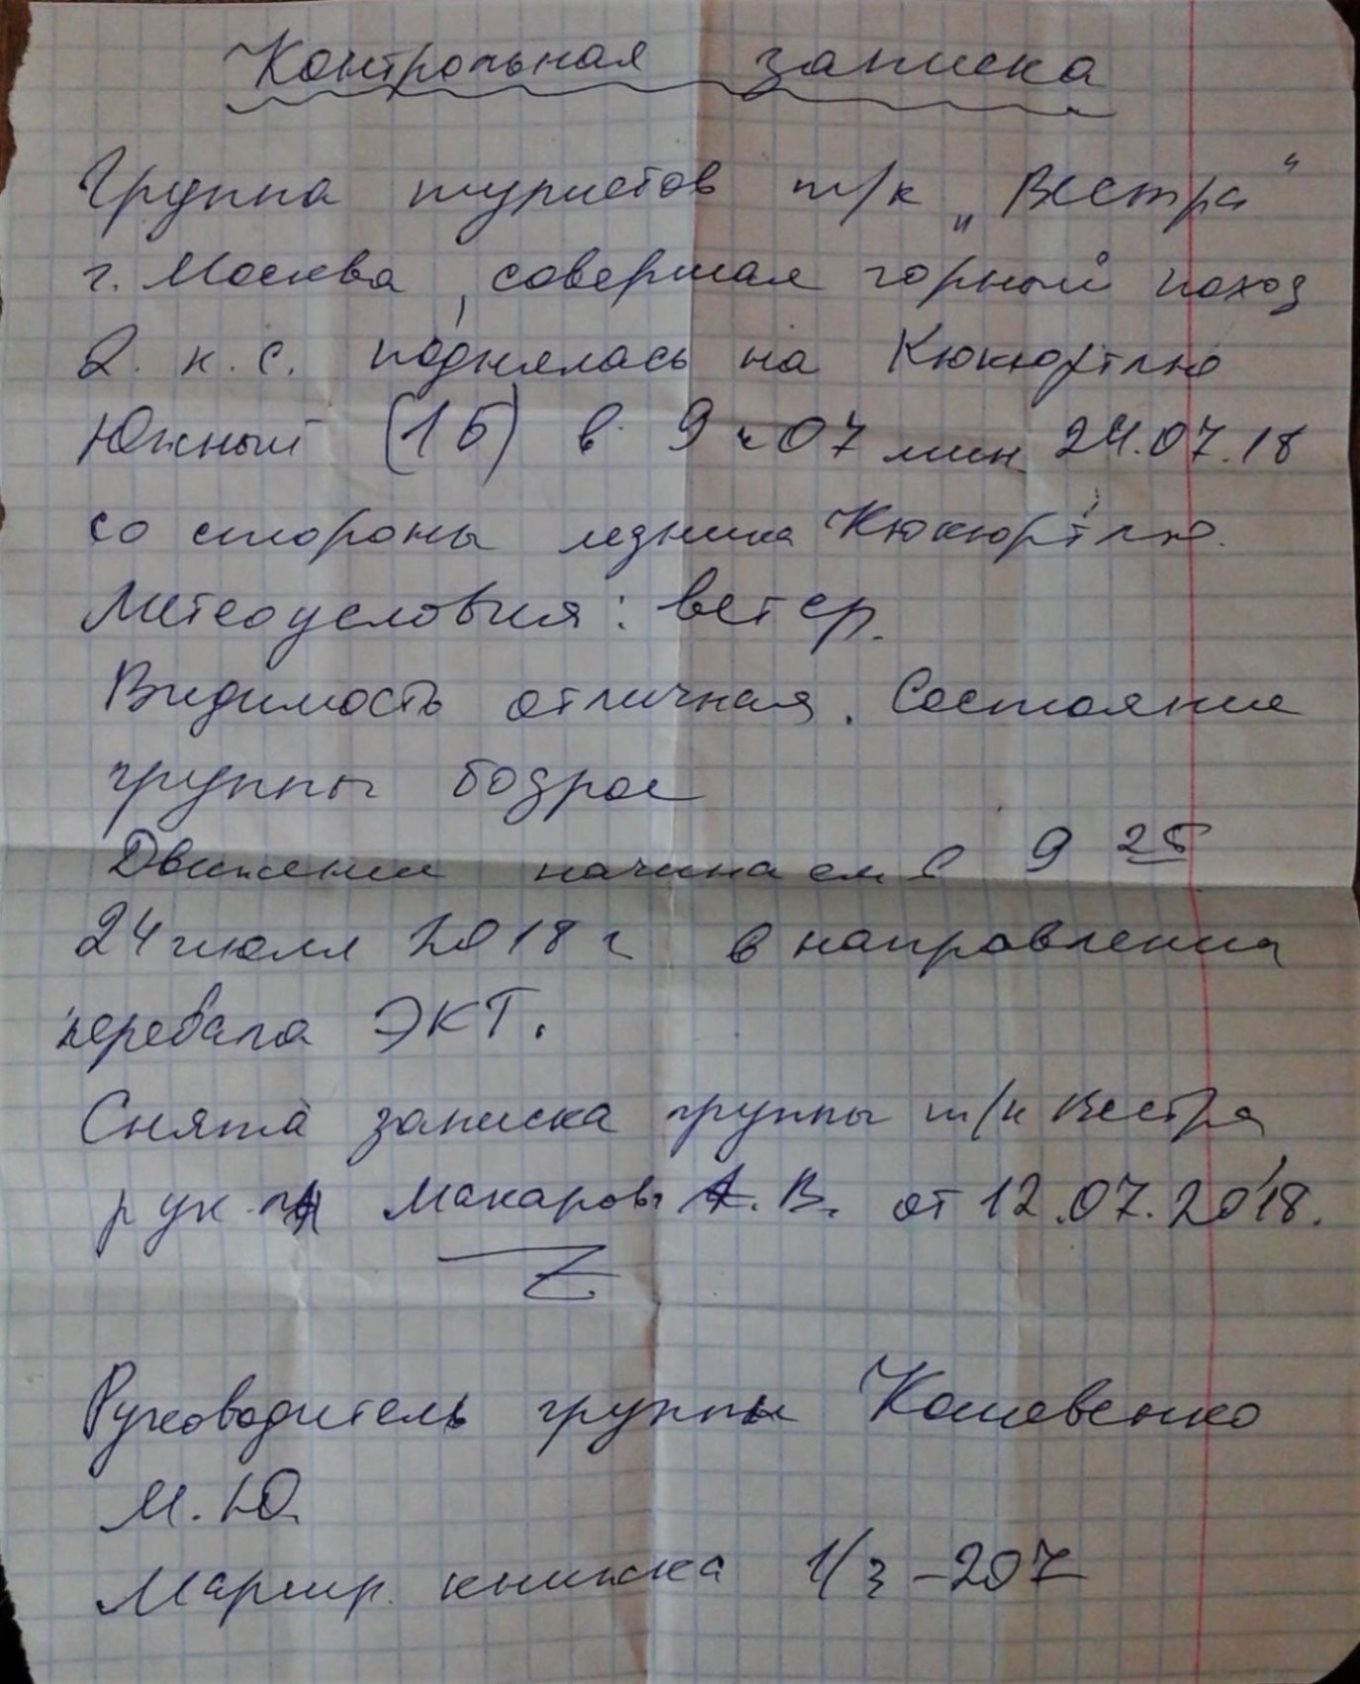 Контрольная записка
Группа туристов т/к „Вестра“
г. Москва, совершая горный поход
2 к.с. поднялась на Кюкюртлю
Южный (1Б) в 9 ч 07 мин 24.07.18
со стороны ледника Кюкюртлю.
Метеоусловия: ветер.
Видимость отличная. Состояние
группы бодрое
Движение начинаем с 9 25
24 июля 2018 г в направлении
перевала ЭКТ.
Снята записка группы т/к Вестра
рук. Макаров А.В. от 12.07.2018.
Руководитель группы
М.Ю.
Маршр. книжка 1/3-207